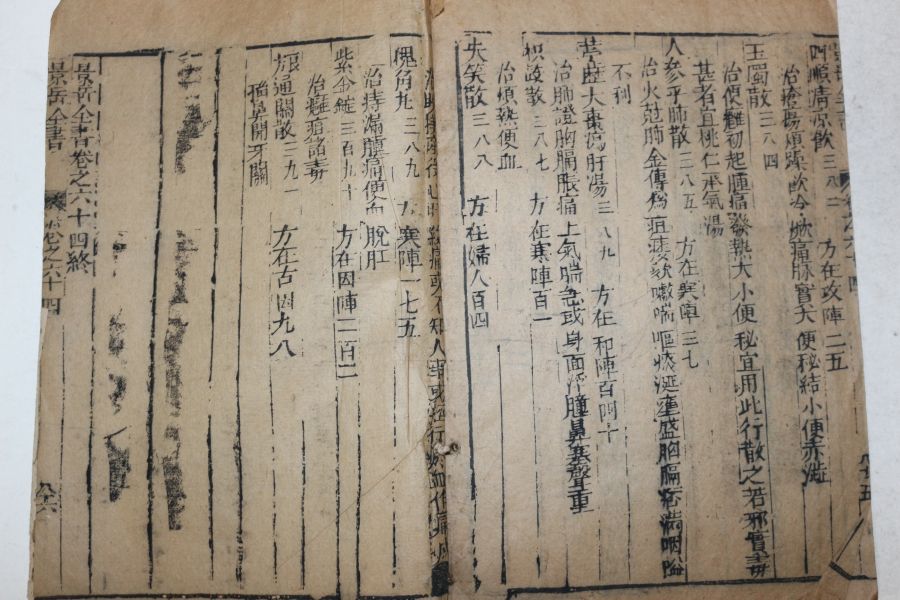 清涼飲三八三 方在攻陣二五
治瘡瘍煩躁飲冷焮痛脉實大便秘結小便赤澁
玉燭散三八四
治便癰初起腫痛發熱大小便秘宜用此行散之若邪實毒
甚者宜桃仁承氣湯
人參平肺散三八五 方在寒陣三七
治火尅肺金傳爲疽痿欬嗽喘嘔痰涎壅盛胸膈痞滿咽嗌
不利
葶藶大棗瀉肝湯三八九 方在和陣百四十
治肺證胸膈脹痛上氣喘急或身面浮腫鼻塞聲重
枳殼散三八七 方在寒陣百一
治煩熱便血
失笑散三八八 方在婦人百四
心中絞痛或不知人事或經行瘀血作痛
槐角丸三八九 寒陣一七五
治持漏腹痛便血脫肛
紫金錠三百九十 方在因陣二百二
治癰疽諸毒
通關散三九一 方在古因九八
鼻開牙關
景岳全書卷之六十四終
景岳全書 卷之六十四